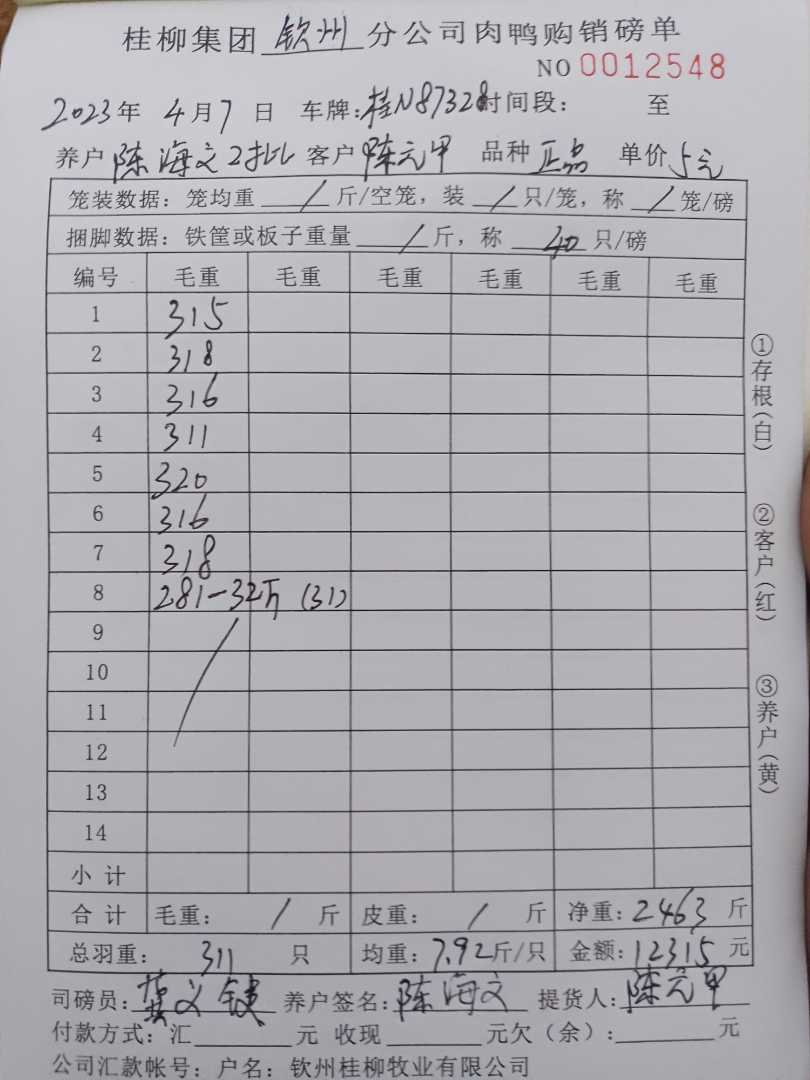 桂柳集团 钦州 分公司肉鸭购销磅单
NO 0012548
2023年 4月7日 车牌:桂N87328时间段: 至
养户 陈海文2批 客户 陈元甲 品种 正品 单价 5元
笼装数据:笼均重 / 斤/空笼,装 / 只/笼,称 / 笼/磅
捆脚数据:铁筐或板子重量 / 斤,称 40 只/磅
编号 毛重 毛重 毛重 毛重 毛重 毛重
1 315
2 318
3 316
4 311
5 320
6 316
7 318
8 281-32 (31)
9
10
11
12
13
14
小计
合计 毛重: / 斤 皮重: / 斤 净重:2463 斤
总羽重: 311 只 均重:7.92斤/只 金额:12315 元
司磅员:龚义键 养户签名:陈海文 提货人:陈元甲
付款方式:汇 元 收现 元欠(余): 元
公司汇款帐号: 户名: 钦州桂柳牧业有限公司
①存根(白)
②客户(红)
③养户(黄)